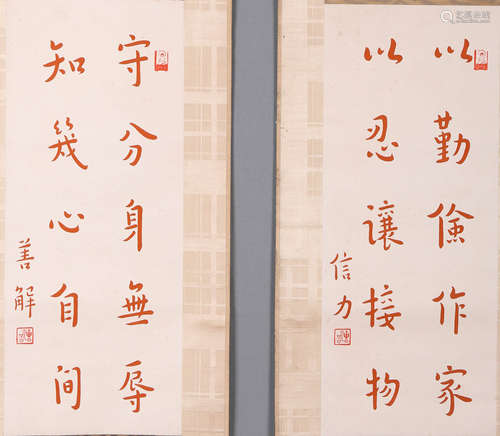 以勤儉作家
以忍讓接物
信力
守分身無辱
知幾心自間
善解